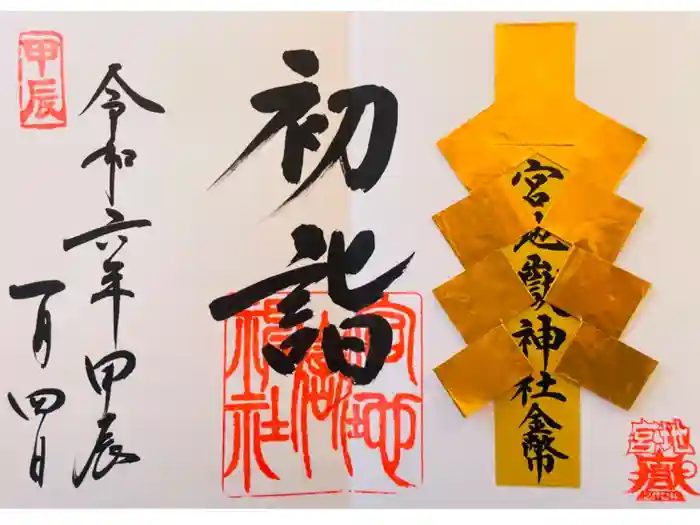 宮地嶽神社金幣
宮地嶽
2024
初詣
宮地嶽神社
令和六年甲辰
一月四日
甲辰